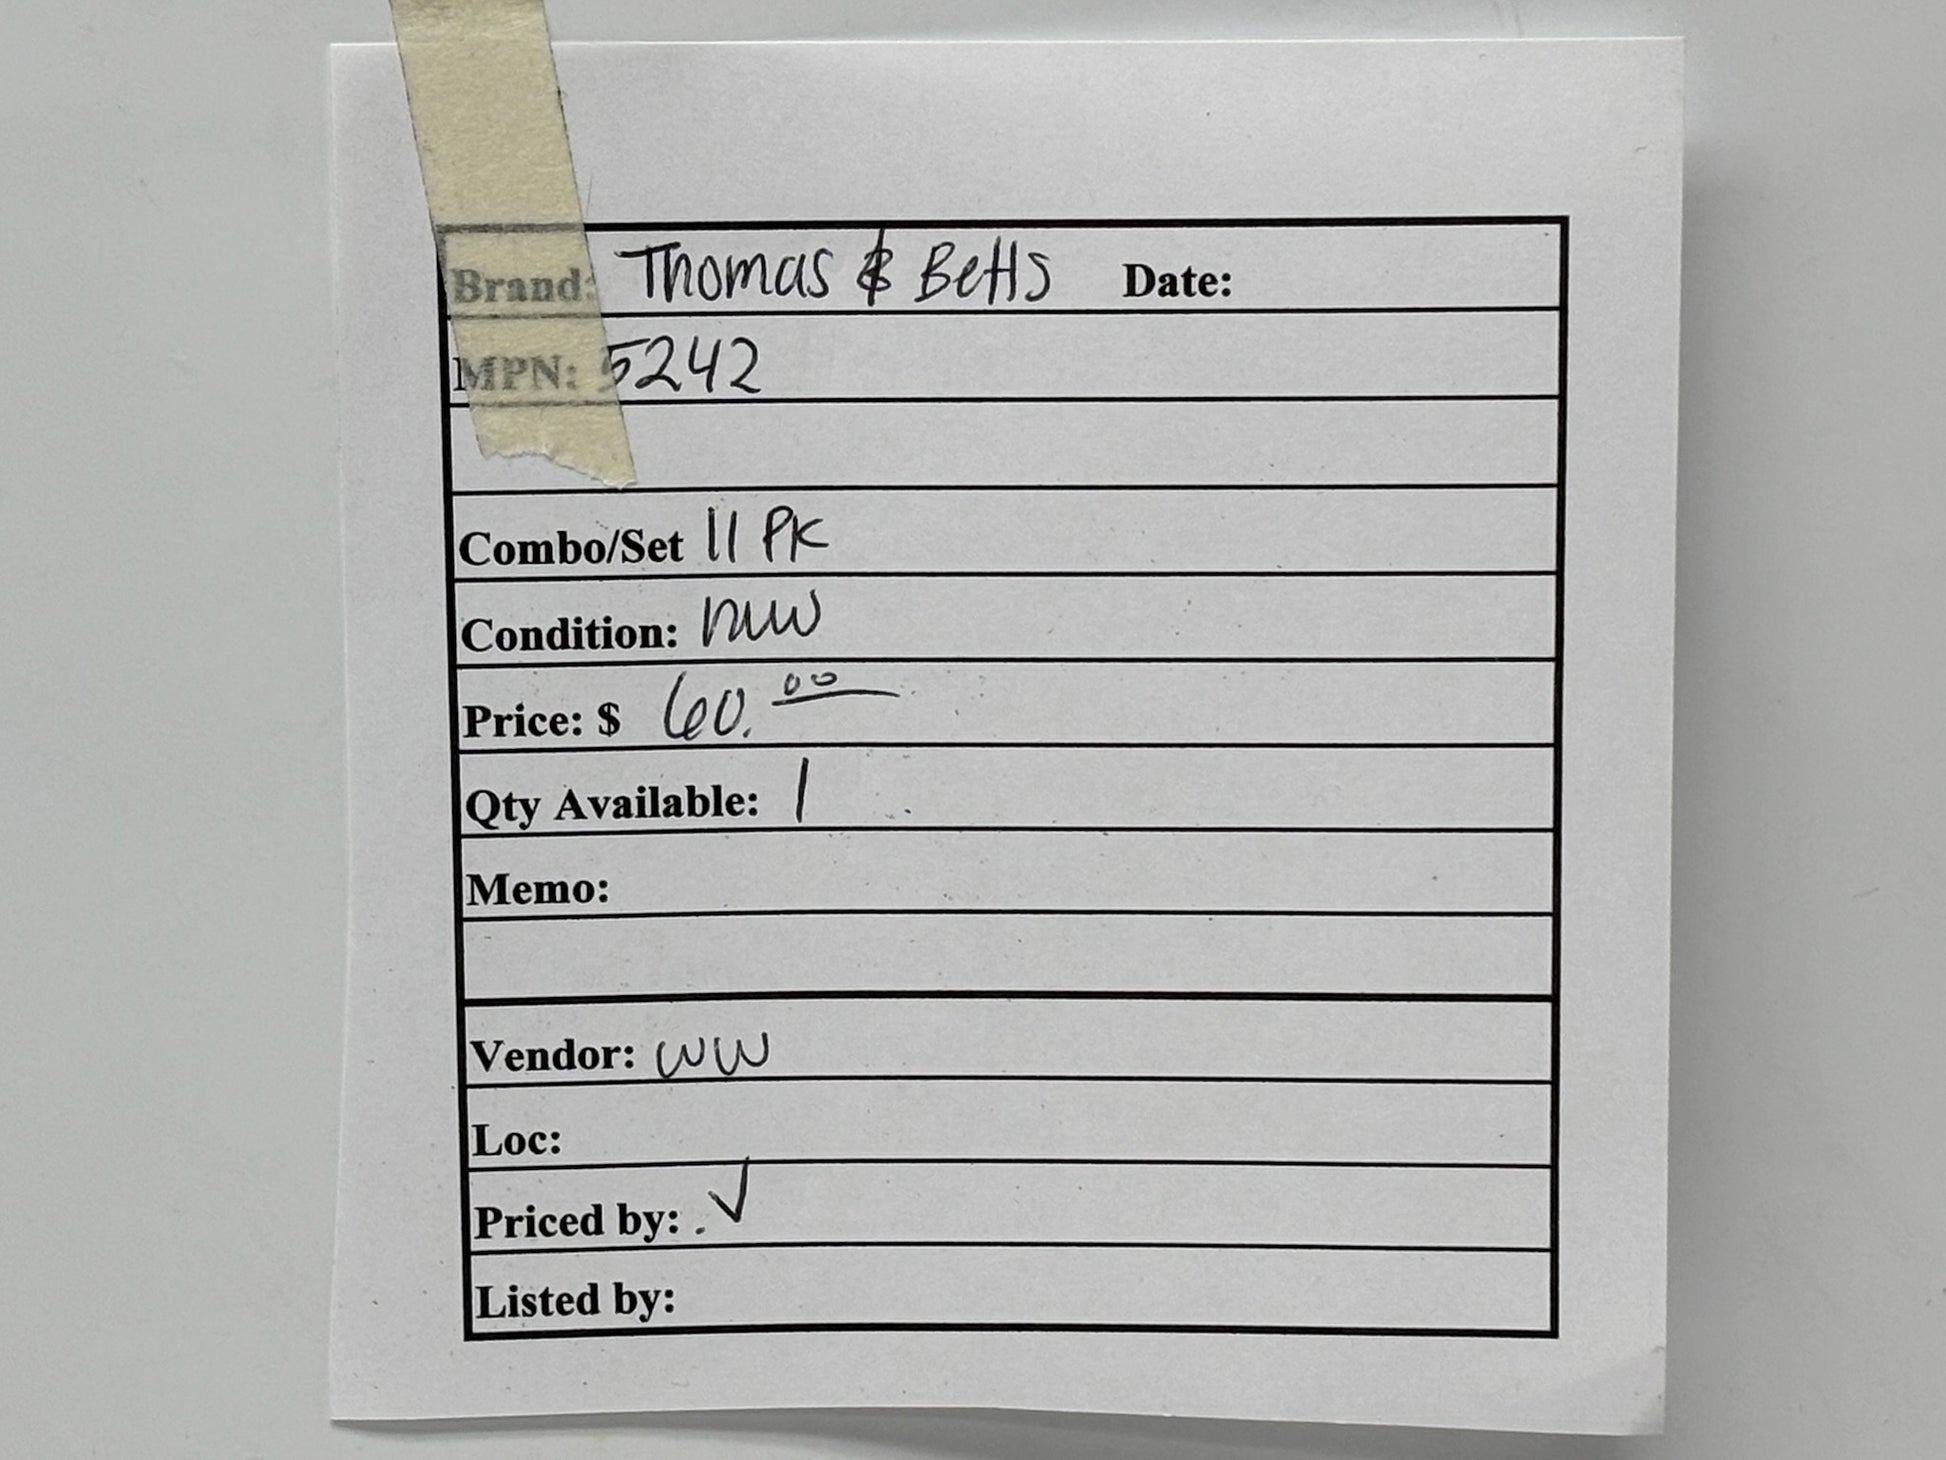 Brand: Thomas & Betts Date:
MPN: 5242
Combo/Set 11 PK
Condition: new
Price: $ 60.00
Qty Available: 1
Memo:
Vendor: WW
Loc:
Priced by: . ✓
Listed by: